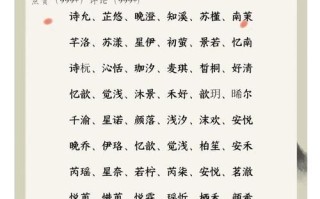 诗允、芷悠、晚澄、知溪、苏槿、南茉
芊洛、苏漾、星伊、初萤、景若、忆南
诗杬、沁恬、咖汐、麦琪、皙桐、好清
忆歆、觉浅、沐景、禾好、歆玥、晞尔
千渝、星诺、颜落、浅汐、沫欢、安悦
晚乔、伊珞、忆歆、觉浅、柏笙、安禾
芮瑶、星奈、若柠、芮柒、安悦、茗澈